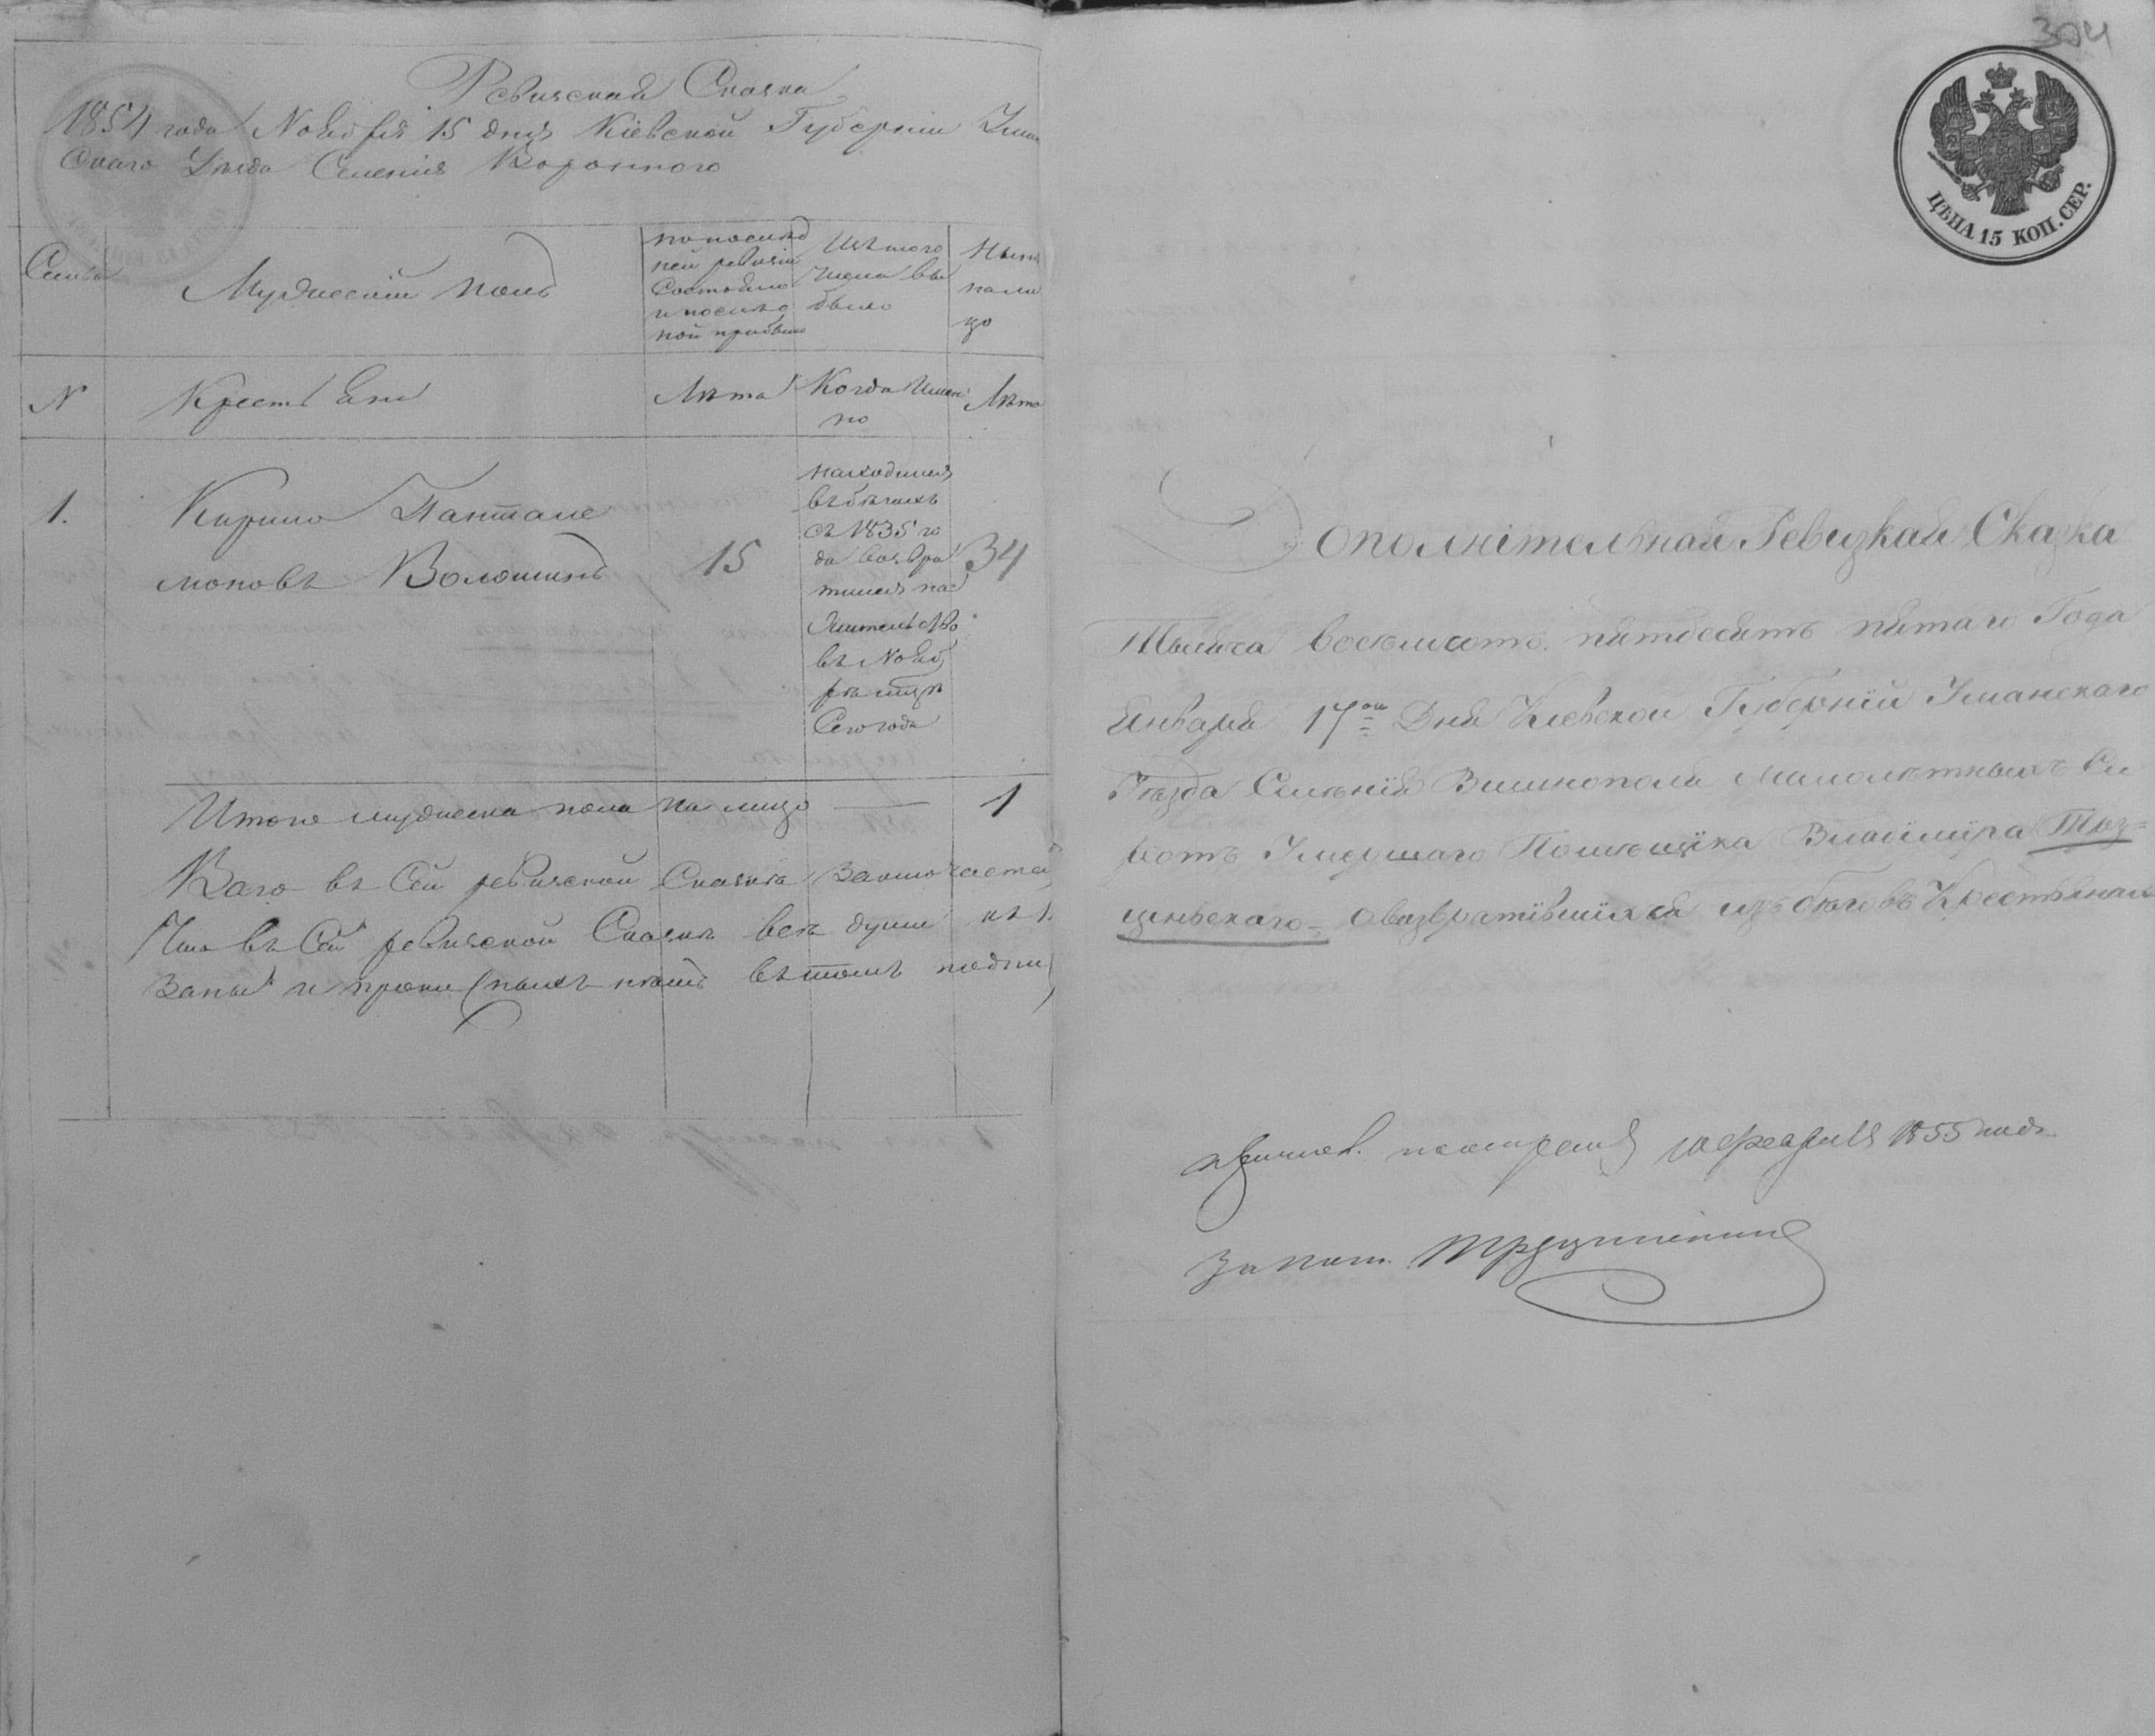 Ревизская Сказка
1854 года Ноября 15 дня Кіевской Губерніи Уман
скаго Уезда Селенія Коронного
Семьи
Мужескій полъ
по послѣд
ней ревизіи
состояло
и послѣ о
ной прибыло
Изъ того
числа вы
было
Нынѣ
нали
цо
N
Крестьяне
Лѣта
Когда имен
но
Лѣта
1.
Кирило Пантале
моновъ Волошинъ
15
находился
въ бѣгахъ
съ 1835 го
да возвра
тился на
жительство
въ Нояб
рѣ мцѣ
сего года
34
Итого мужеска пола на лицо — 1
Всего въ Сей ревизской Сказкѣ заключается
Что въ Сей ревизской Сказкѣ всѣ души
заны и прописныхъ нѣтъ въ томъ подпи
304
ЦѢНА 15 КОП. СЕР.
Дополнітельная Ревизкая Сказка
Тысяча восемьсотъ пятдесятъ пятаго Года
Января 17го Дня Киевской Губерній Уманскаго
Уезда Селѣнія Вишнополя Малолѣтныхъ Си
ротъ Умершаго Помѣщика Владиміра
овозвратівшихся изъ бѣговъ Крестьянах
10 февраля 1855 года